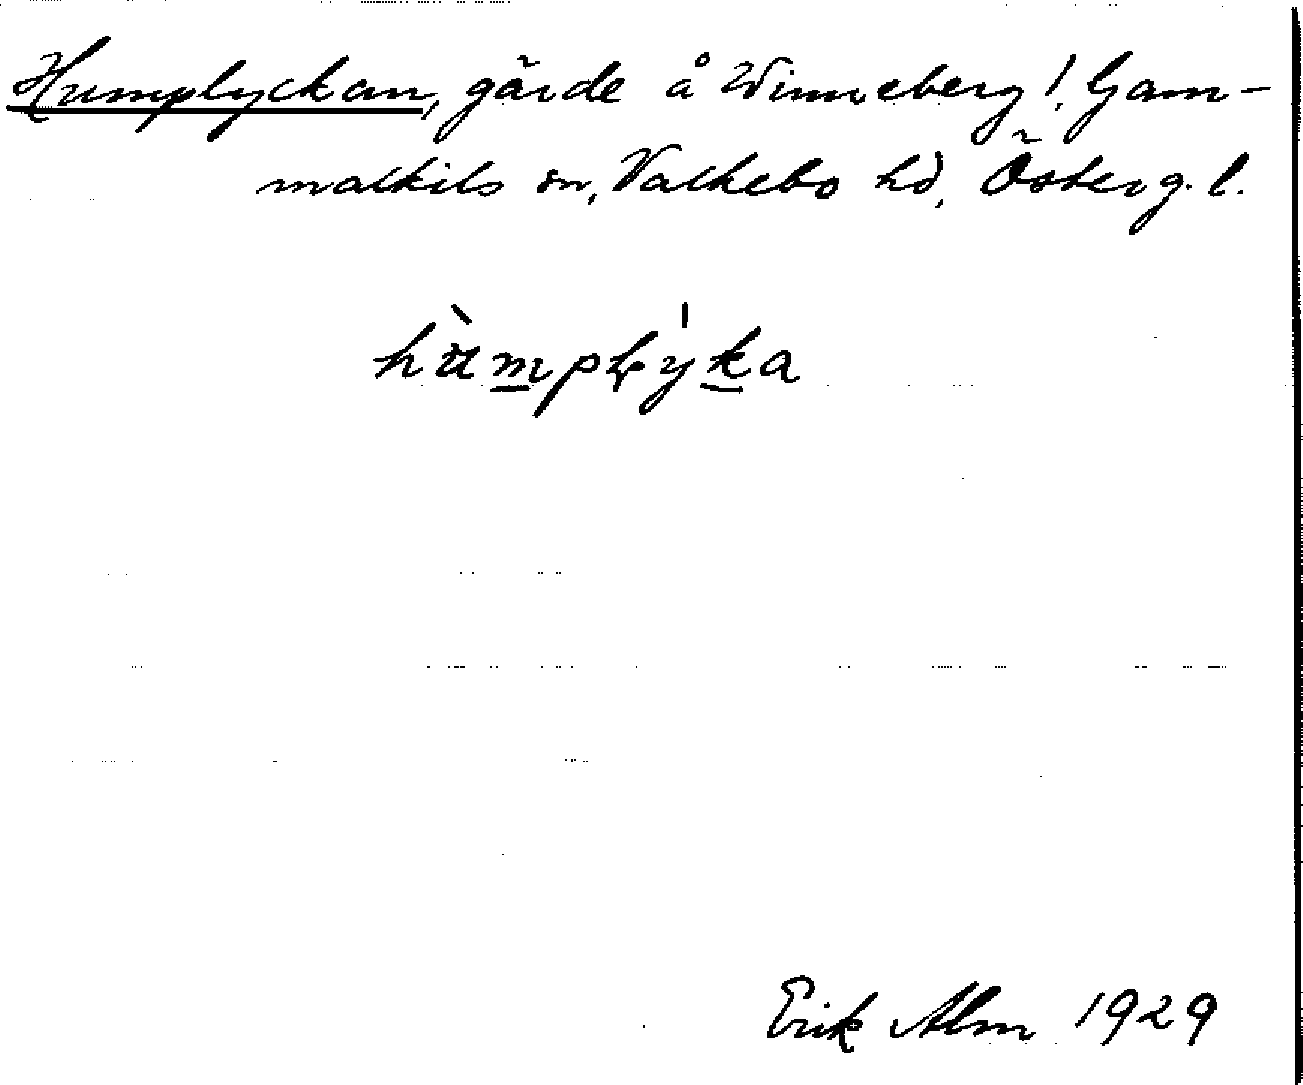 Humplyckan, gärde å Winneberg!, Gam-
malkils sn, Valkebo hd, Österg. l.
hùmplýka
Erik Alm 1929